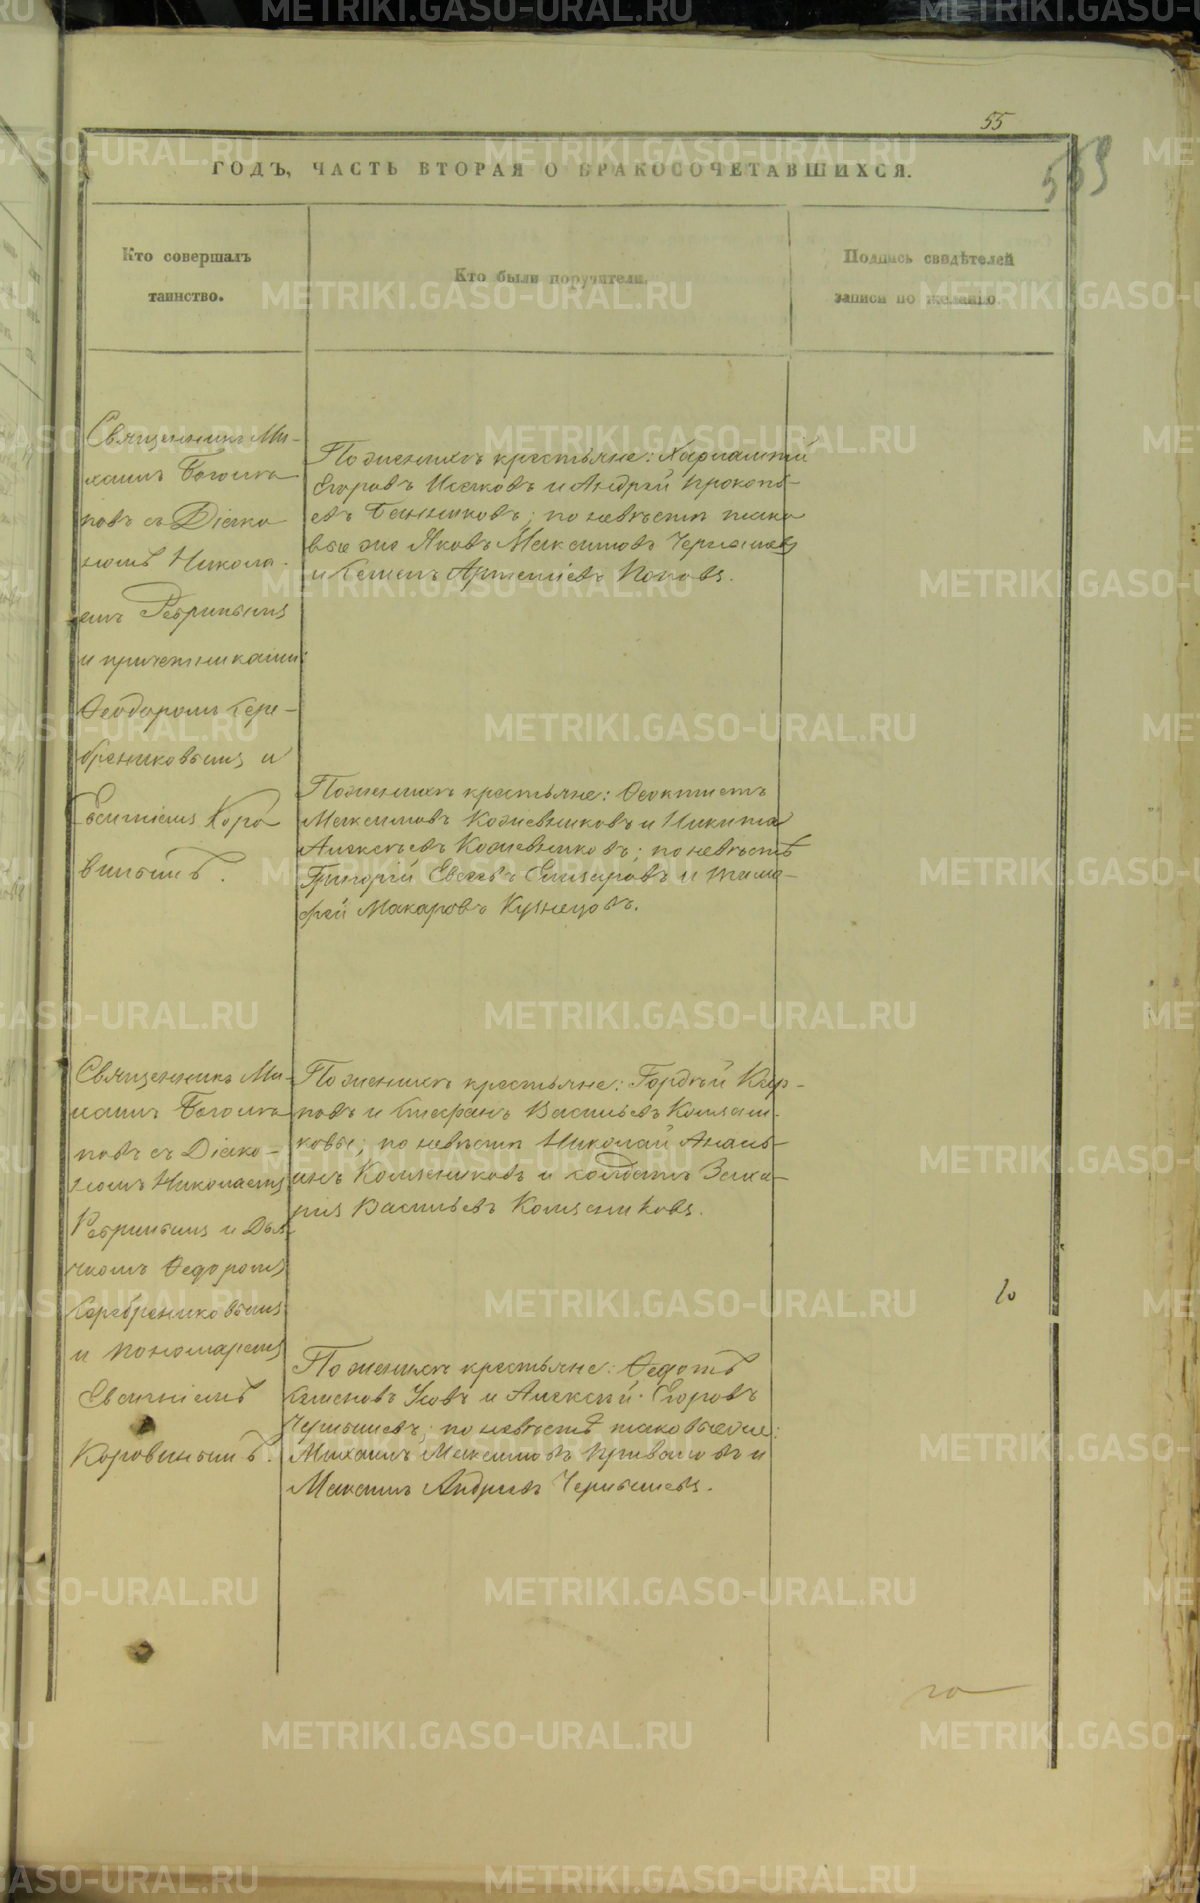 55
559
ГОДЪ, ЧАСТЬ ВТОРАЯ О БРАКОСОЧЕТАВШИХСЯ.
Кто совершалъ
таинство.
Кто были поручители.
Подпись свидѣтелей
записи по желанію.
Священникъ Ми-
хаилъ Боголѣ
повъ съ Діако
номъ Никола-
емъ Ребринымъ
и причетниками:
Ѳеодоромъ Сере-
брениковымъ и
Евгеніемъ Коро
винымъ.
По женихѣ крестьяне: Харлампій
Егоровъ Исаковъ и Андрей Прокопь-
евъ Банниковъ; по невѣстѣ тако
вые же Яковъ Максимовъ
и Семенъ Артеміевъ Поповъ.
По женихѣ крестьяне: Ѳеоктистъ
Максимовъ Кожевниковъ и Никита
Алексѣевъ Кожевниковъ; по невѣстѣ
Григорій Елизаровъ и Тимо-
фей Макаровъ Кузнецовъ.
Священникъ Ми-
хаилъ Боголѣ
повъ съ Діако-
номъ Николаемъ
Ребринымъ и Дья-
чкомъ Ѳедоромъ
Серебрениковымъ
и пономаремъ
Евгеніемъ
Коровинымъ.
По женихѣ крестьяне: Гордѣй Кар-
повъ и Стефанъ Васильевъ
по невѣстѣ Николай Анань-
инъ и солдатъ Заха-
рія Васильевъ
По женихѣ крестьяне: Ѳедотъ
Семеновъ Усовъ и Алексѣй Егоровъ
Чернышевъ; по невѣстѣ таковые же:
Михаилъ Максимовъ Приваловъ и
Максимъ Андреевъ Чернышевъ.
METRIKI.GASO-URAL.RU